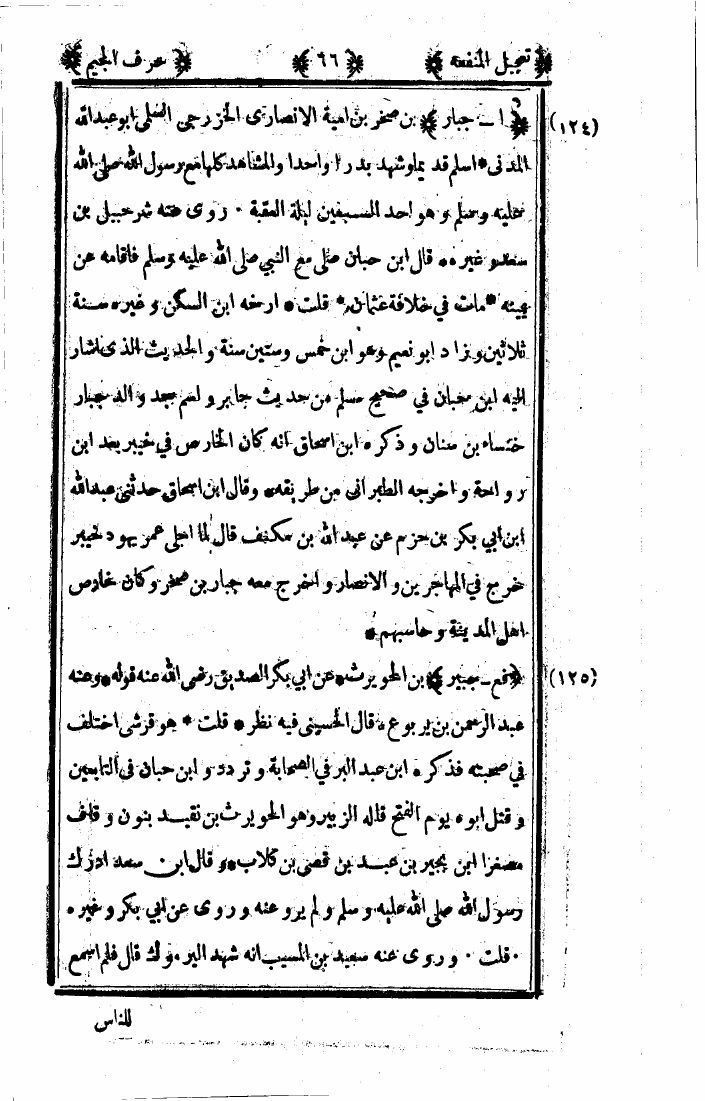 ﴿ تعجيل المنفعة ﴾ ﴿ ٦٦ ﴾ ﴿ حرف الجيم ﴾
(١٢٤) ﴿ ا ـ جبار ﴾ بن صخر بن امية الانصارى الخزرجى السلمى ابو عبد الله
المدنى * اسلم قديما وشهد بدرا واحدا والمشاهد كلها مع رسول الله صلى الله
عليه وسلم وهو احد السبعين ليلة العقبة ٠ روى عنه شرحبيل بن
سعد وغيره * قال ابن حبان صلى مع النبي صلى الله عليه وسلم فاقامه عن
يمينه * مات في خلافة عثمان * قلت * ارخه ابن السكن وغيره سنة
ثلاثين وزاد ابو نعيم وهو ابن خمس وستين سنة والحديث الذى اشار
اليه ابن حبان في صحيح مسلم من حديث جابر و جد والد جبار
خنساء بن سنان وذكره ابن اسحاق انه كان الخارص في خيبر بعد ابن
رواحة واخرجه الطبرانى من طريقه * وقال ابن اسحاق حدثنى عبد الله
ابن ابي بكر بن حزم عن عبد الله بن مكنف قال لما اجلى عمر يهود خيبر
خرج في المهاجرين والانصار واخرج معه جبار بن صخر وكان خارص
اهل المدينة وحاسبهم *
(١٢٥) ﴿ فع ـ جبير ﴾ بن الحويرث * عن ابي بكر الصديق رضى الله عنه قوله * وعنه
عبد الرحمن بن يربوع * قال الحسينى فيه نظر * قلت * هو قرشى اختلف
في صحبته فذكره ابن عبد البر في الصحابة وتردد و ابن حبان فى التابعين
وقتل ابوه يوم الفتح قاله الزبير وهو الحويرث بن نقيد بنون وقاف
مصغرا ابن بجير بن عبد بن قصى بن كلاب * وقال ابن سعد ادرك
رسول الله صلى الله عليه وسلم ولم يرو عنه وروى عن ابي بكر وغيره
٠ قلت ٠ وروى عنه سعيد بن المسيب انه شهد اليرموك قال فلم اسمع
للناس